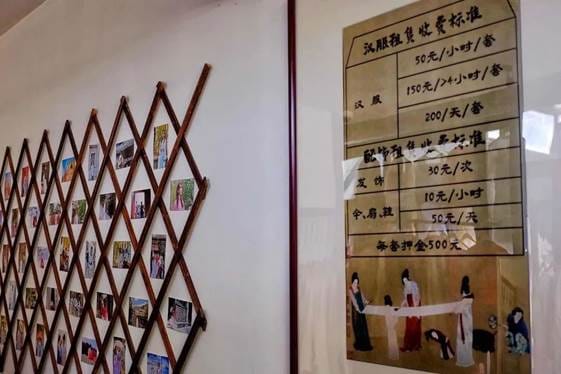 汉服租赁收费标准
汉服
50元/小时/套
150元/>4小时/套
200/天/套
配饰租赁收费标准
发饰
30元/次
伞、扇、鞋
10元/小时
50元/天
每套押金500元